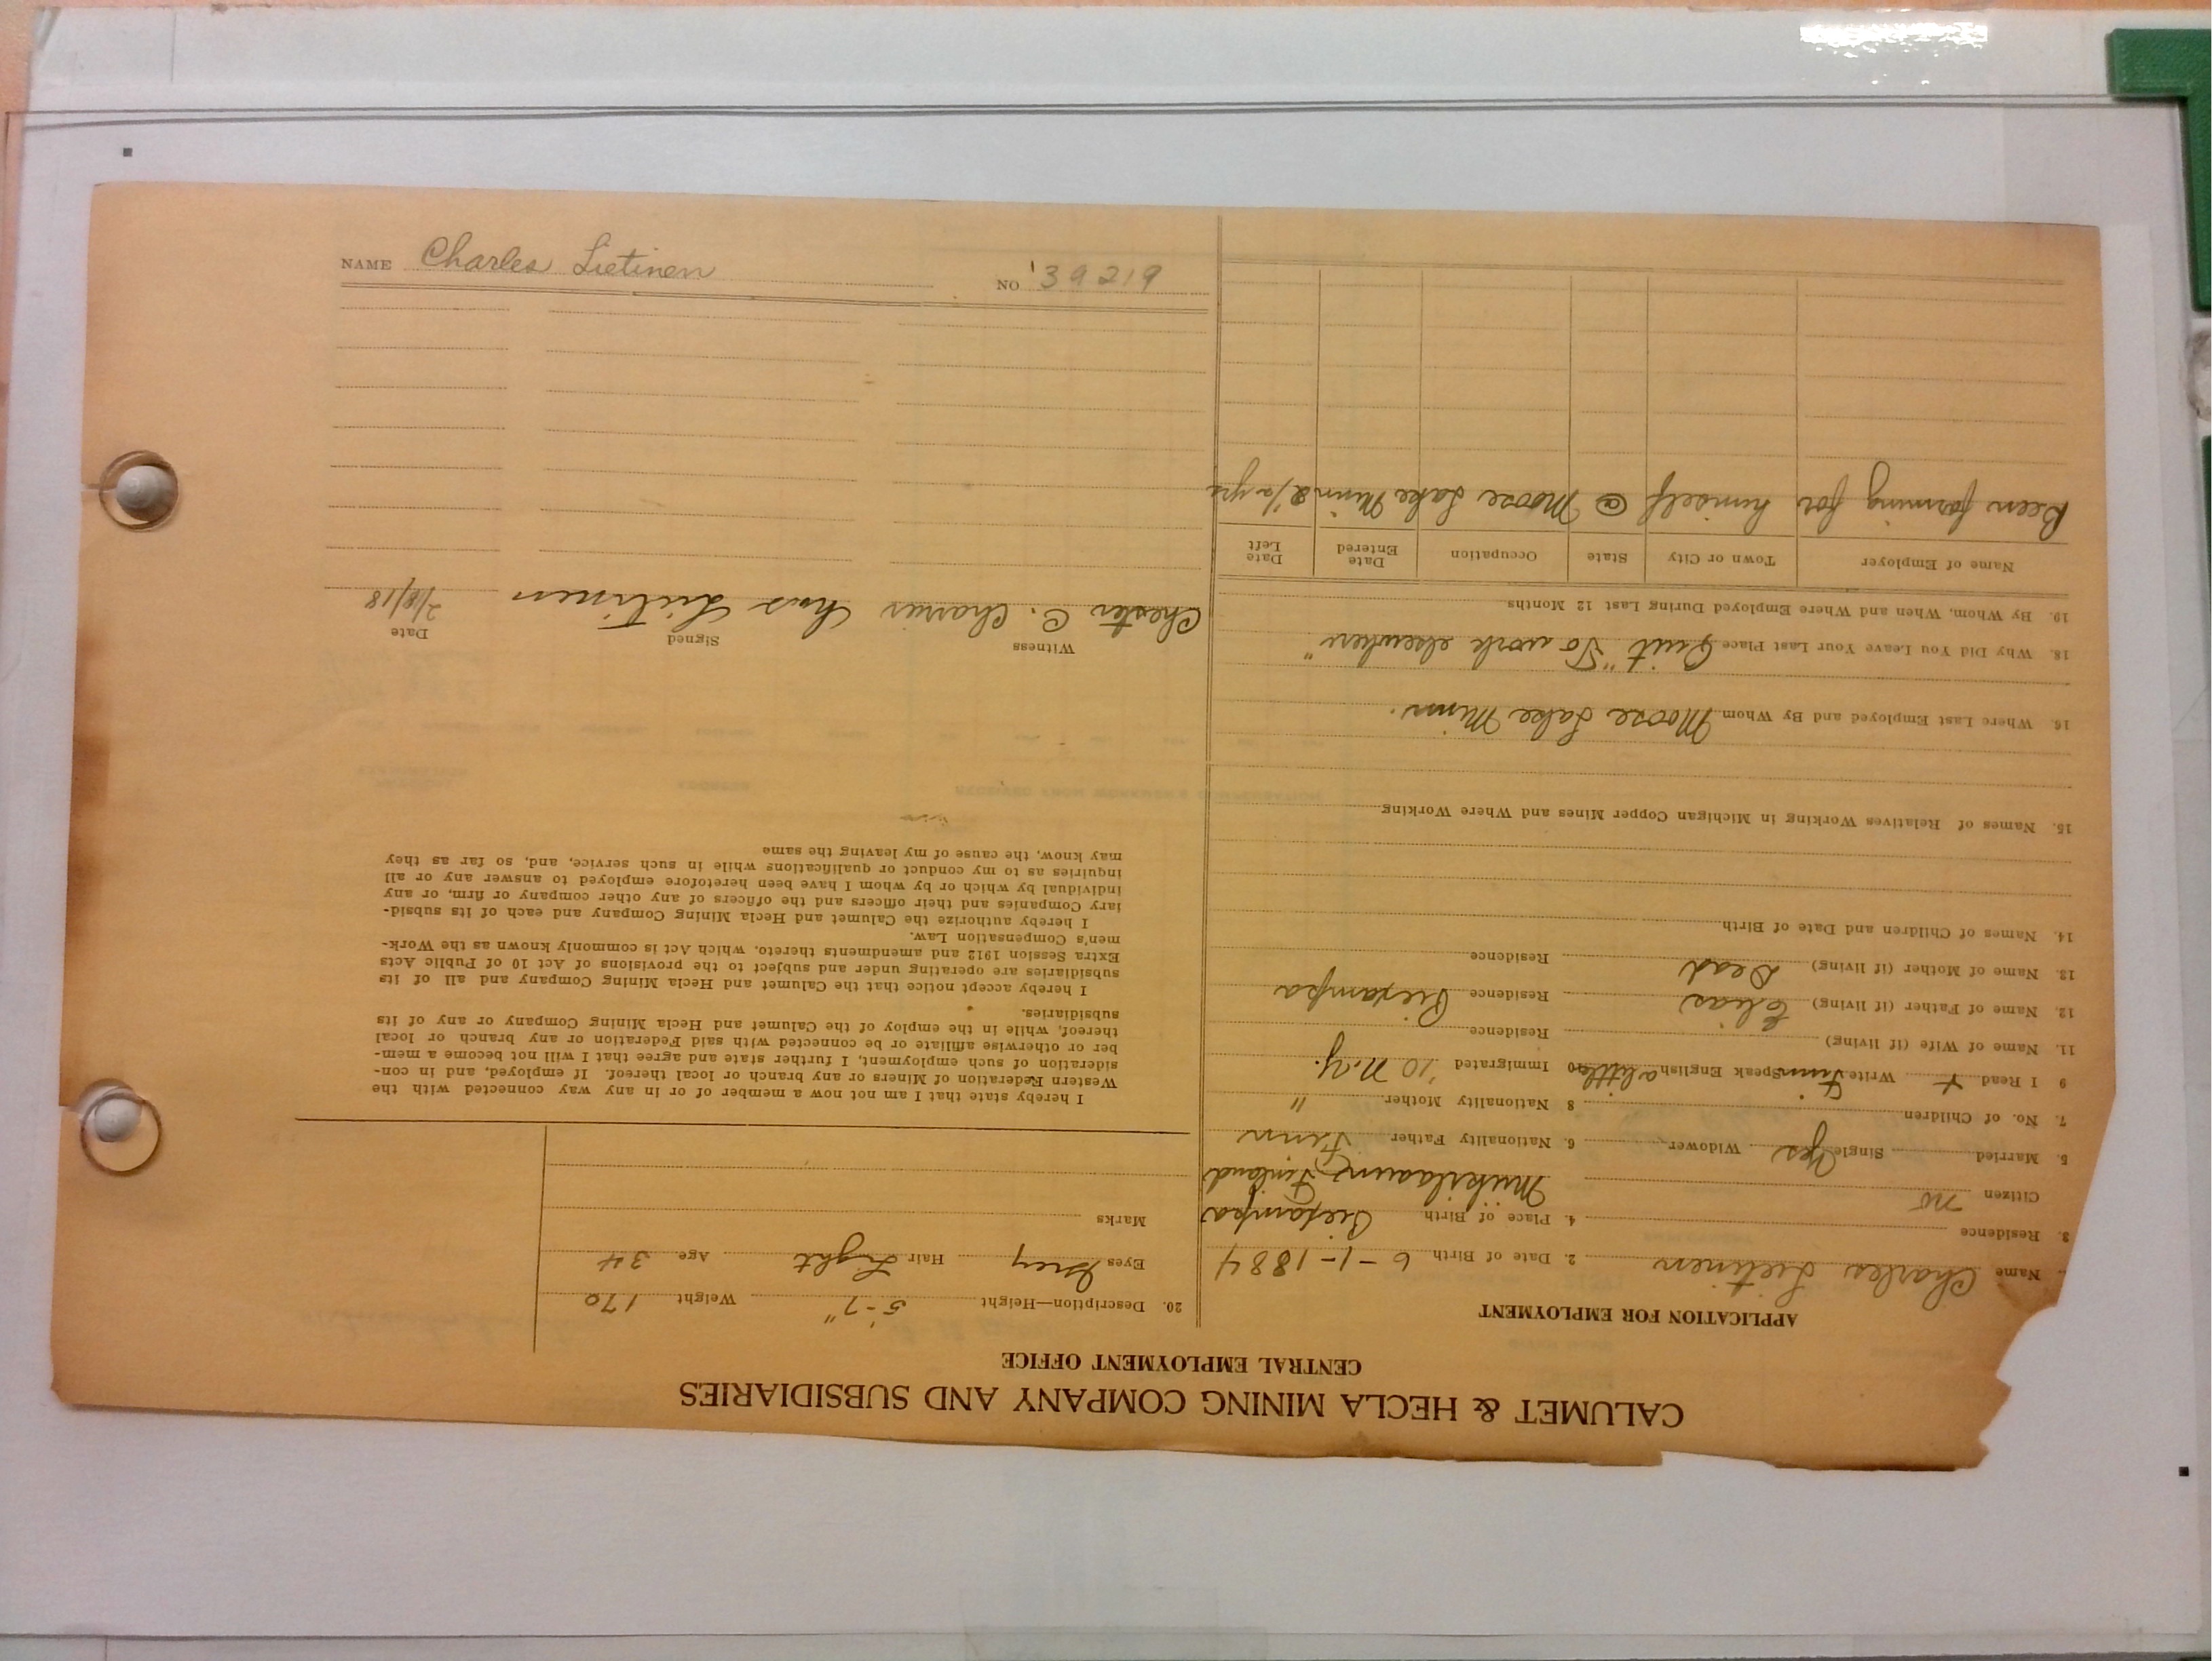 CALUMET & HECLA MINING COMPANY AND SUBSIDIARIES
CENTRAL EMPLOYMENT OFFICE
APPLICATION FOR EMPLOYMENT
Name Charles Lietinen 2. Date of Birth 6-1-1884
3. Residence 4. Place of Birth
Citizen no Finland
5. Married Single Yes Widower 6. Nationality Father Finn
7. No. of Children 8 Nationality Mother "
9 I Read + Write Finn Speak English a little 10 Immigrated '10 N.Y.
11. Name of Wife (if living) Residence
12. Name of Father (if living) Elias Residence
13. Name of Mother (if living) Dead Residence
14. Names of Children and Date of Birth
15. Names of Relatives Working in Michigan Copper Mines and Where Working
16. Where Last Employed and By Whom Moose Lake Minn.
18. Why Did You Leave Your Last Place Quit "To work elsewhere"
19. By Whom, When and Where Employed During Last 12 Months
Name of Employer Town or City State Occupation Date Entered Date Left
Been farming for himself @ Moose Lake Minn 2 1/2 yrs
20. Description—Height 5'-7" Weight 170
Eyes Grey Hair Light Age 34
Marks
I hereby state that I am not now a member of or in any way connected with the
Western Federation of Miners or any branch or local thereof. If employed, and in con-
sideration of such employment, I further state and agree that I will not become a mem-
ber or otherwise affiliate or be connected with said Federation or any branch or local
thereof, while in the employ of the Calumet and Hecla Mining Company or any of its
subsidiaries.
I hereby accept notice that the Calumet and Hecla Mining Company and all of its
subsidiaries are operating under and subject to the provisions of Act 10 of Public Acts
Extra Session 1912 and amendments thereto, which Act is commonly known as the Work-
men's Compensation Law.
I hereby authorize the Calumet and Hecla Mining Company and each of its subsid-
iary Companies and their officers and the officers of any other company or firm, or any
individual by which or by whom I have been heretofore employed to answer any or all
inquiries as to my conduct or qualifications while in such service, and, so far as they
may know, the cause of my leaving the same
Witness Signed Date
Chester C. Chas Lietinen 2/8/18
NAME Charles Lietinen NO 39219